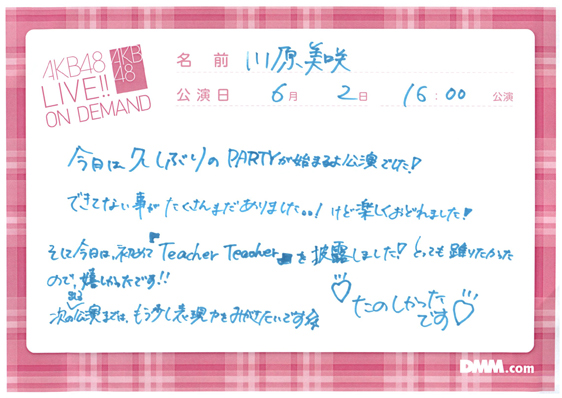 AKB48
LIVE!!
ON DEMAND
AKB
48
名前 川原美咲
公演日 6月 2日 16:00 公演
今日は久しぶりのPARTYが始まるよ公演でした!
できてない事がたくさんまだありました..! けど楽しくおどれました!
そして今日は、初めて『Teacher Teacher』を披露しました! とっても踊りたかった
ので、嬉しかったです!!
次の公演までは、もう少し表現力をみがきたいです
♡たのしかった
です♡
DMM.com